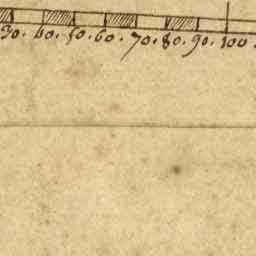 30. 40. 50. 60. 70. 80. 90. 100.